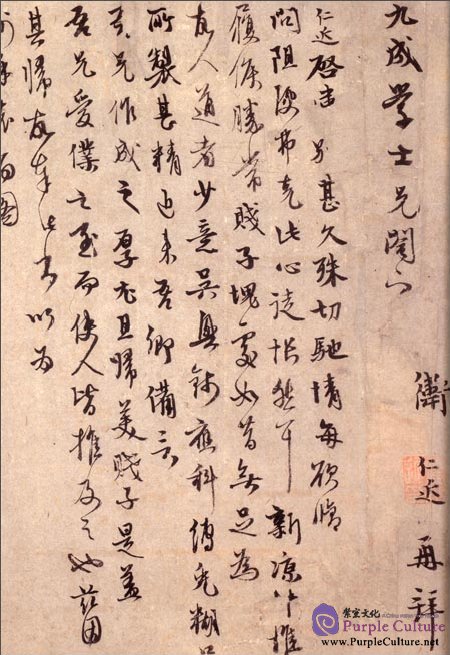 衛仁近再拜
九成学士兄閣下
仁近啓 别甚久殊切馳情每欲臨
問阻深弗克此心徒悵然耳新涼惟
履候勝常賤子塊處如昔無足為
友人道者少意吳興錢應科傅兒糊口
所製甚精近來吾鄉備言
吾兄作成之厚尤且歸美賤子是蓋
吾兄愛僕之至而使人皆推及之也茲因
其歸友草此以為
紫宸文化
Purple Culture
www.PurpleCulture.net